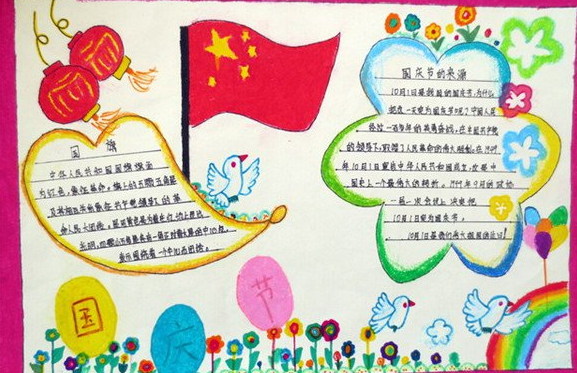 国 旗
中华人民共和国国旗旗面
为红色,象征革命。旗上的五颗五角星
及其相互关系象征共产党领导下的革
命人民大团结。星用黄色是为着在红地上显出
光明,四颗小五角星各有一尖正对着大星的中心点,
表示围绕着一个中心而团结。
国庆节的来源
10月1日是我国的国庆节,为什么
把这一天定为国庆节呢?中国人民
经过一百多年的英勇奋战,在中国共产党
的领导下,取得了人民革命的伟大胜利。在1949
年10月1日宣告中华人民共和国成立,这是中
国历史上一个最伟大的转折。1949年9月的政协
一届一次会议上决定把
10月1日定为国庆节。
10月1日是我们伟大祖国的生日!
国
庆
节